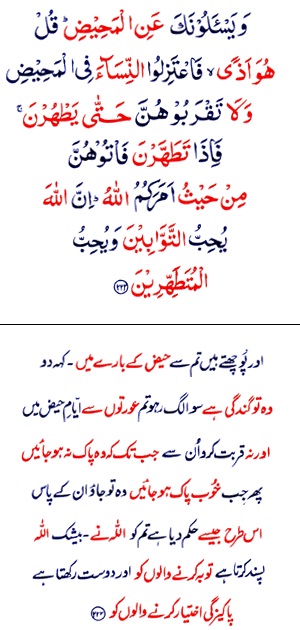 وَيَسْـَٔلُوْنَكَ عَنِ الْمَحِيْضِ ؕ قُلْ
هُوَ اَذًى ۙ فَاعْتَزِلُوا النِّسَآءَ فِى الْمَحِيْضِ
وَلَا تَقْرَبُوْهُنَّ حَتّٰى يَطْهُرْنَ ۚ
فَاِذَا تَطَهَّرْنَ فَاْتُوْهُنَّ
مِنْ حَيْثُ اَمَرَكُمُ اللّٰهُ ؕ اِنَّ اللّٰهَ
يُحِبُّ التَّوَّابِيْنَ وَيُحِبُّ
الْمُتَطَهِّرِيْنَ ﴿۲۲۲﴾
اور پُوچھتے ہیں تم سے حیض کے بارے میں ۔ کہہ دو
وہ تو گندگی ہے سو الگ رہو تم عورتوں سے ایّامِ حیض میں
اور نہ قربت کرو اُن سے جب تک کہ وہ پاک نہ ہو جائیں
پھر جب خُوب پاک ہو جائیں وہ تو جاؤ ان کے پاس
اس طرح جیسے حکم دیا ہے تم کو اللہ نے ۔ بیشک اللہ
پسند کرتا ہے توبہ کرنے والوں کو اور دوست رکھتا ہے
پاکیزگی اختیار کرنے والوں کو ﴿۲۲۲﴾